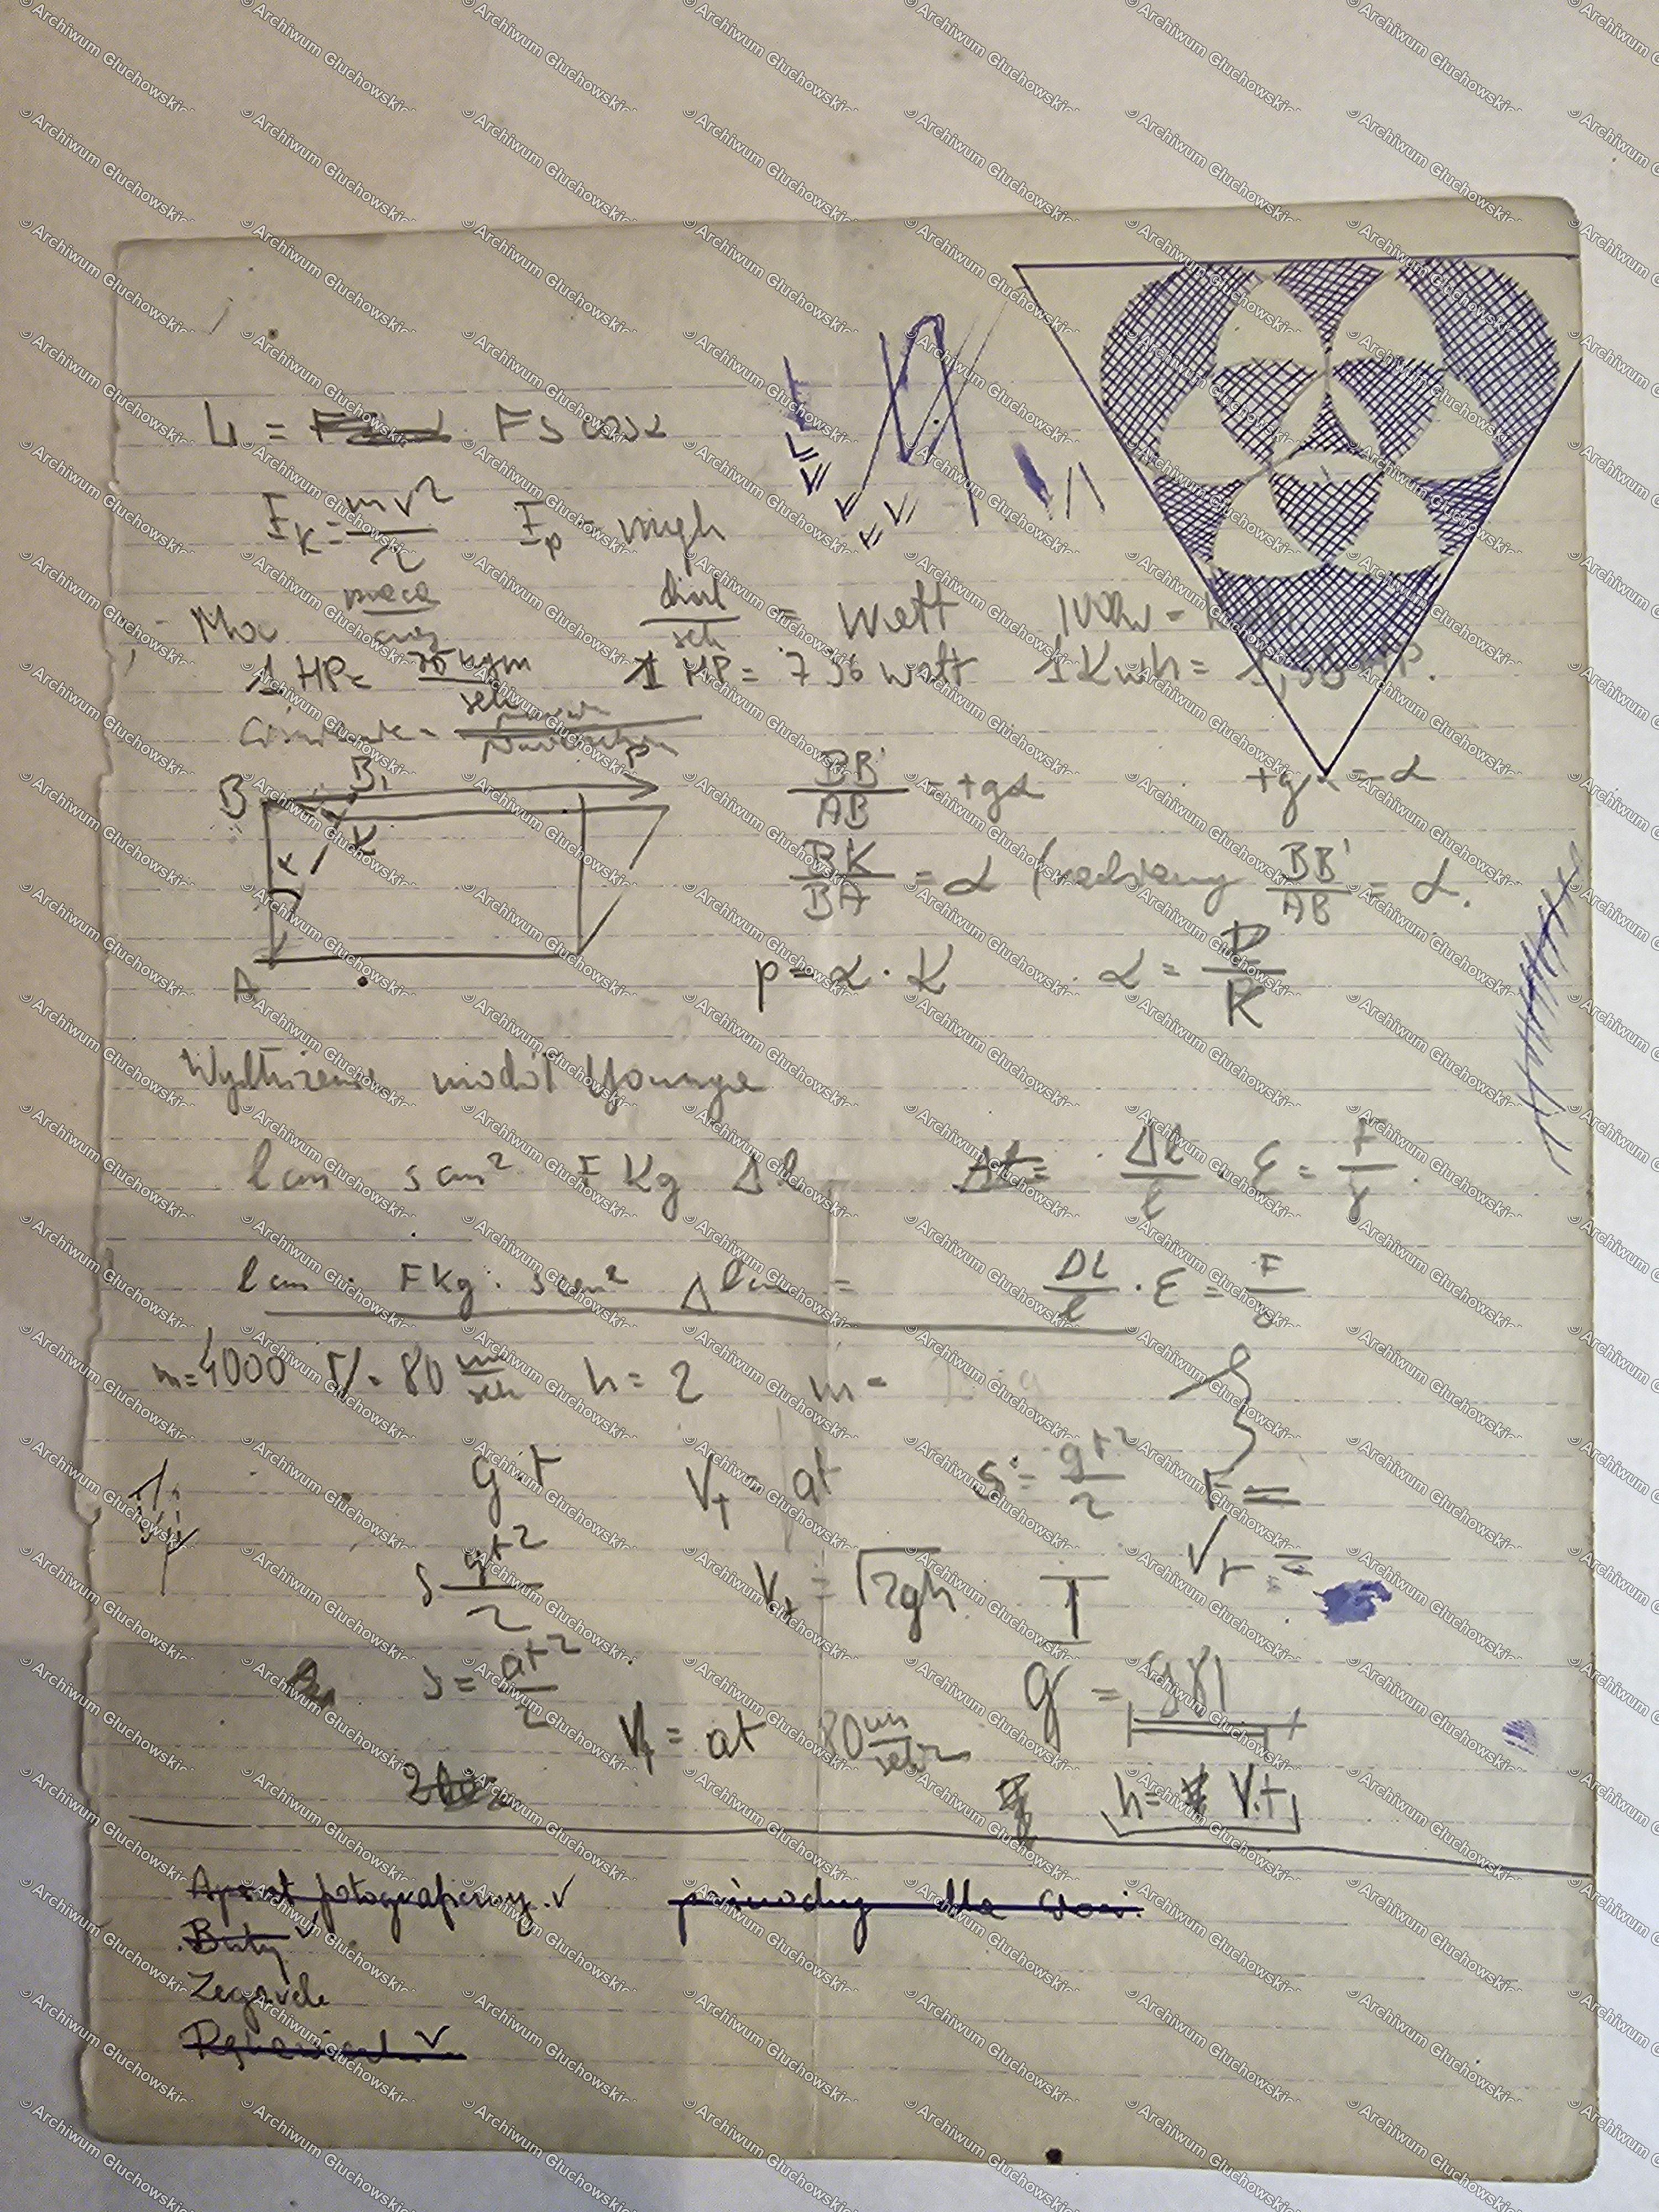 L = Fs cos α
E_K = mv²/2 E_p = mgh
Moc praca/czas dżul/sek = Watt
1 HP = 75 kgm/sek 1 HP = 736 watt 1 Kwh = 1,36 HP.
Ciśnienie =
B B₁ P
K
α
A
BB'/AB = tgα tgα = α
BK/BA = α (radiany BB'/AB = α.
p = α · K α = P/K
Wydłużenie moduł Younga
l cm s cm² F Kg Δl Δl/l ε = F/s
l cm F Kg s cm² Δl cm = Δl/l · ε = F/s
m = 4000 V = 80 m/sek h = 2 m =
g·t V_t = at s = gt²/2 F =
s gt²/2 V_t = √2gh V_t =
s = at²/2 g = 981
V_t = at 80 m/sek
h = V·t
Aparat fotograficzny v
Buty v
Zegarek
Rękawiczki v
© Archiwum Głuchowski